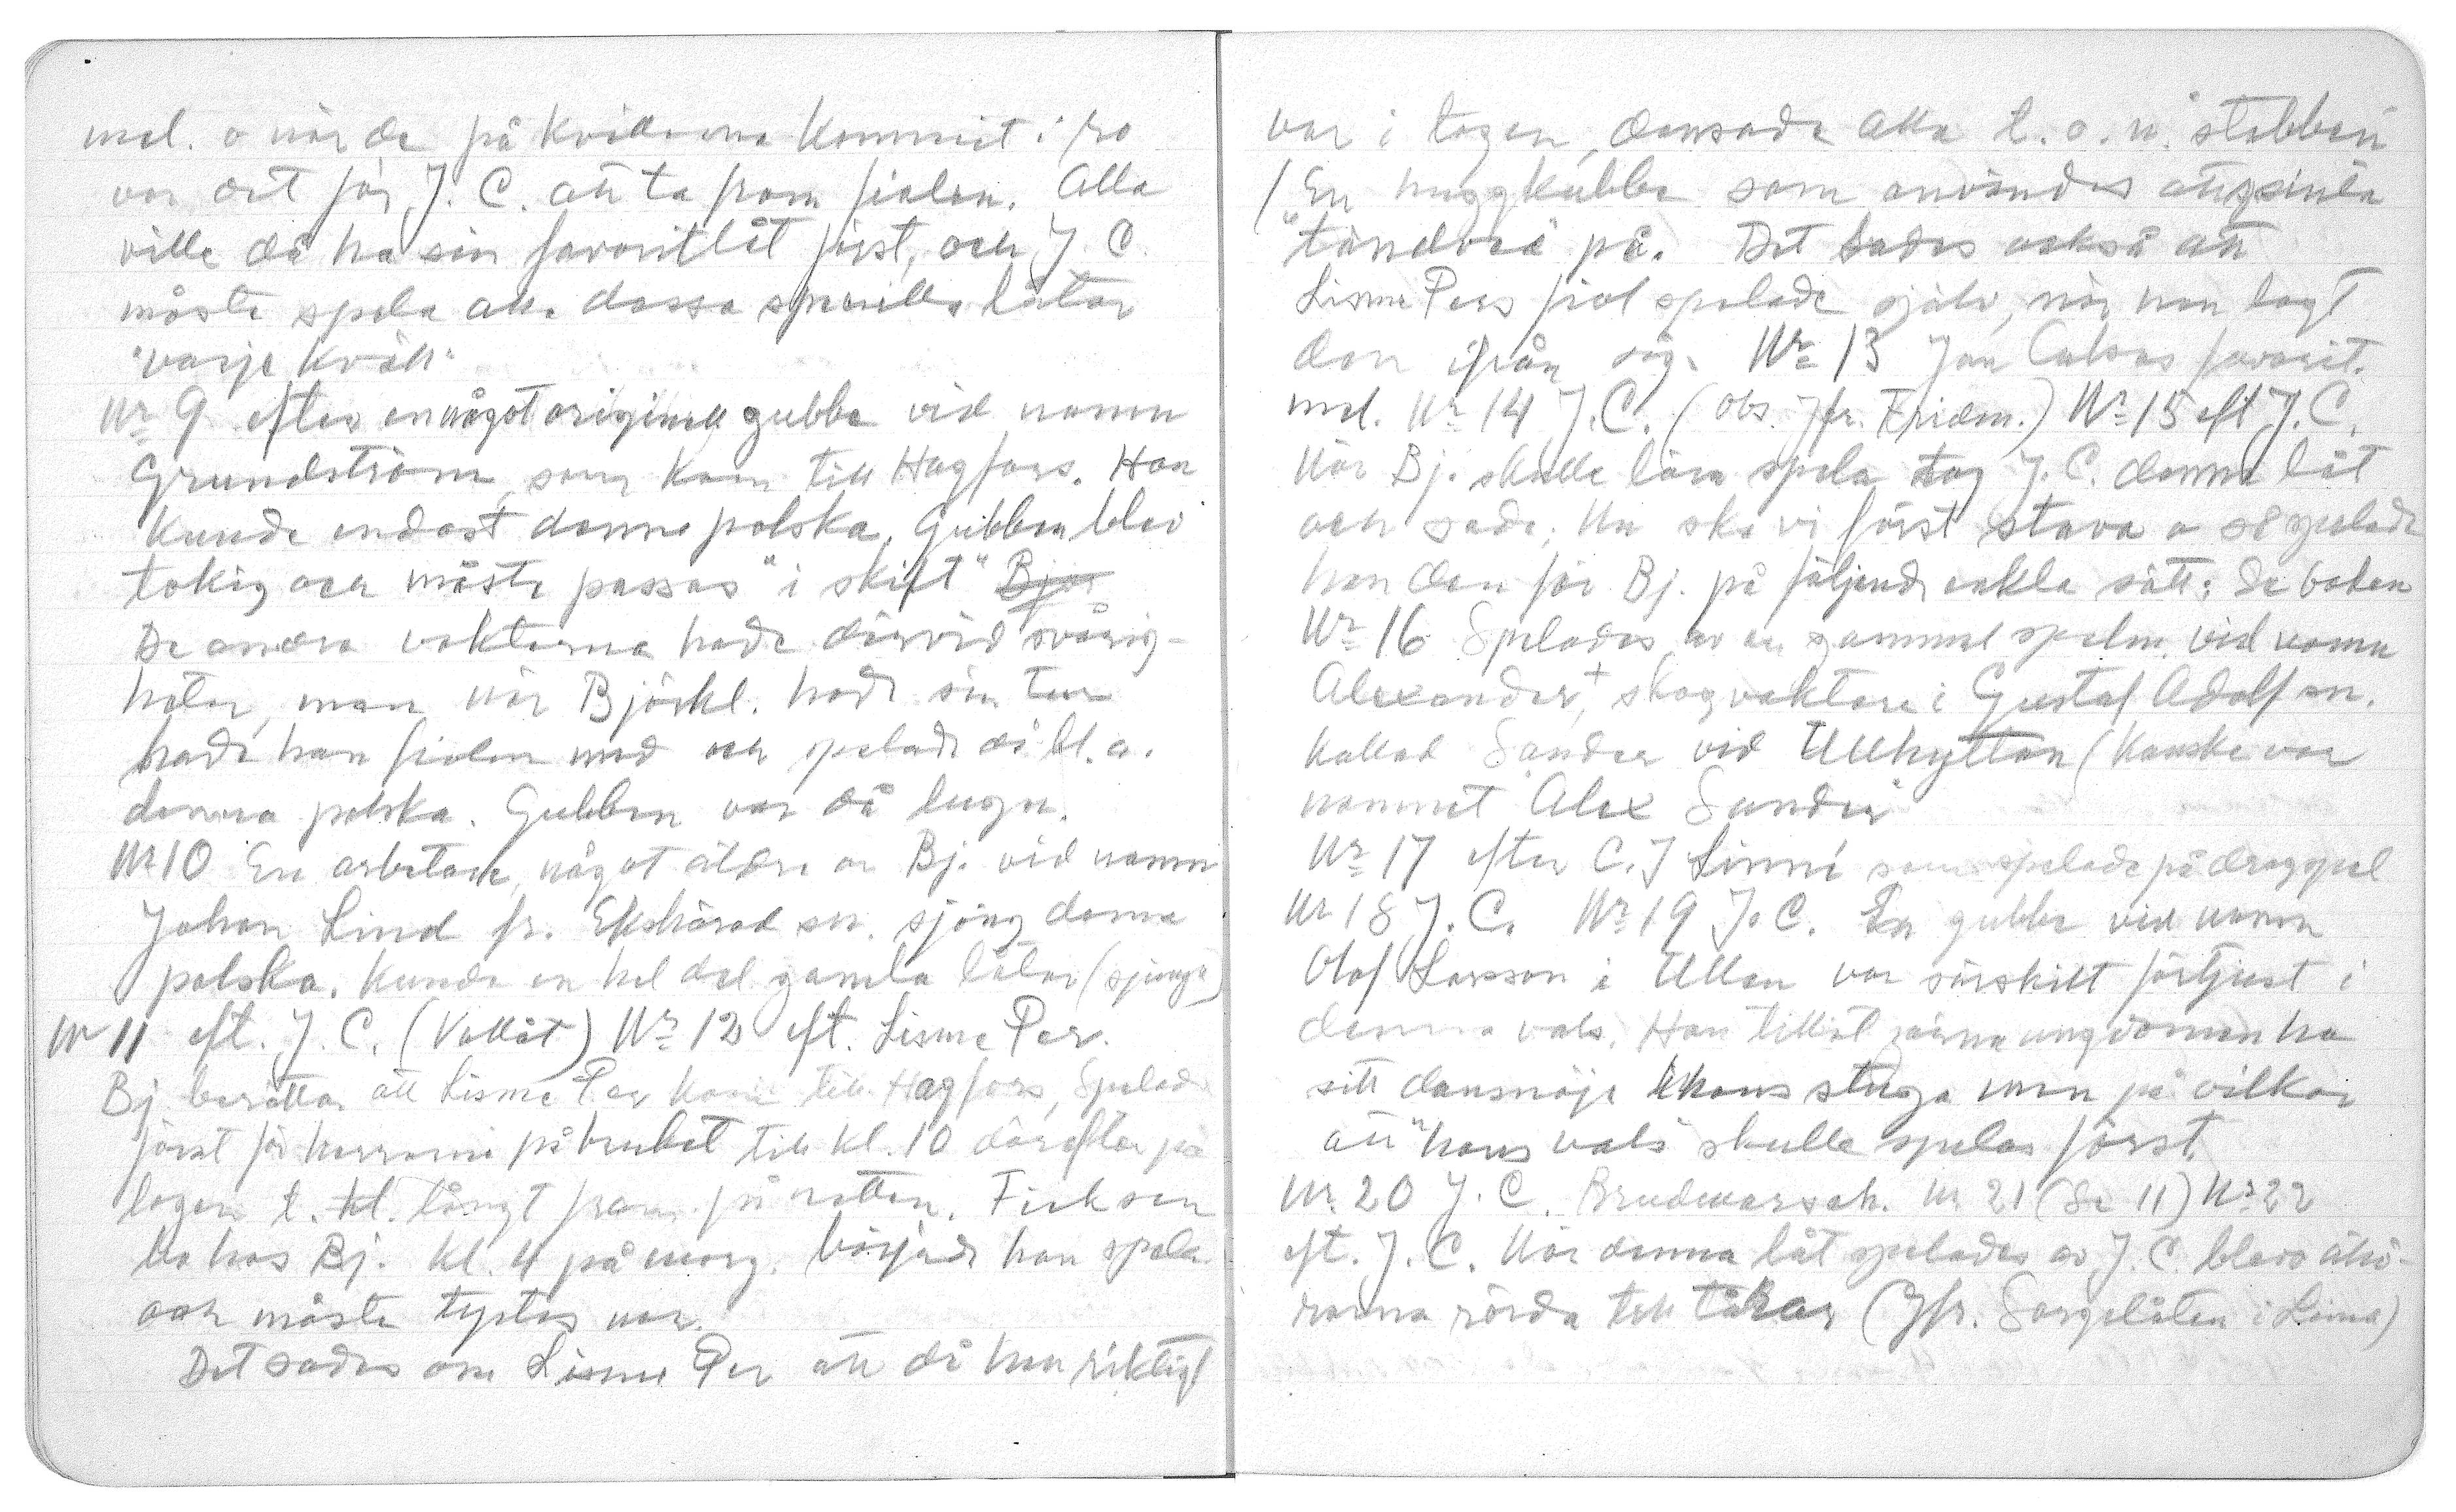 mel. o när de på kvällarna kommit i ro
var det för J. C. att ta fram fiolen. Alla
ville då ha sin favoritlåt först, och J C.
måste spela alla dessa speciella låtar
"varje kväll"
Nr 9 efter en något originell gubbe vid namn
Grundström, som kom till Hagfors. Han
kunde endast denna polska. Gubben blev
tokig och måste passas "i skift"
De andra vakterna hade därvid svårig-
heter, men när Björkl. hade sin tur
hade han fiolen med och spelade då bl. a.
denna polska. Gubben var då lugn.
Nr 10 En arbetare, något äldre än Bj. vid namn
Johan Lind fr. Ekshärad sn. sjöng denna
polska. Kunde en hel del gamla låtar (sjunga)
Nr 11 eft. J. C. (Vallåt) Nr 12 eft. Lisme Per.
Bj. berättar att Lisme Per kom till Hagfors, Spelade
först för herrarna på bruket till kl. 10 därefter på
logen t. långt fram på natten. Fick sen
bo hos Bj. Kl. 4 på morg. började han spela
och måste tystas ner.
Det sades om Lisme Per att då han riktigt
var i tagen, dansade alla t. o. m. "stabben"
(En huggkubbe som användes att
"tändved" på. Det sades också att
Lisme Pers fiol spelade själv, när han lagt
den ifrån sig. Nr 13 Jan Calsas favorit.
mel. Nr 14 J. C. (Obs. Jfr. Fridm.) Nr 15 eft J. C.
När Bj. skulle lära spela tog J. C. denna låt
och sade; Nu ska vi först stava o så spelade
han den för Bj. på följande enkla sätt: Se boken
Nr 16 Spelades av en gammal spelm. vid namn
Alexander,+ skogvaktare i Gustaf Adolf sn.
Kallad Sander vid Ullhyttan (Kanske var
namnet Alex Sander
Nr 17 efter C. J Linné som spelade på dragspel
Nr 18 J. C. Nr 19 J. C. En gubbe vid namn
Olof Larsson i Ullen var särskilt förtjust i
denna vals. Han tillät gärna ungdomen ha
sitt dansnöje i hans stuga men på vilkor
att "hans vals" skulle spelas först.
Nr. 20 J. C. Brudmarsch. Nr 21 (Se 11) Nr 22
eft. J. C. När denna låt spelades av J. C. blevo åhö-
rarna rörda till tårar (Jfr. Sorgelåten i Lima)